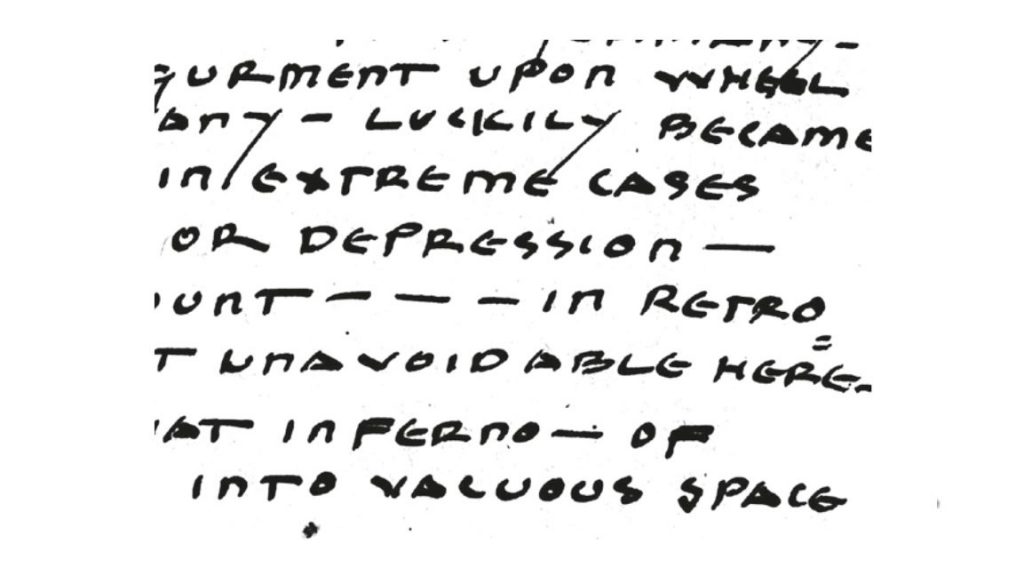 GURMENT UPON WHEEL
ANY - LUCKILY BECAME
IN EXTREME CASES
OR DEPRESSION —
OUNT - - - IN RETRO=
T UNAVOIDABLE HERE.
AT INFERNO — OF
INTO VACUOUS SPACE